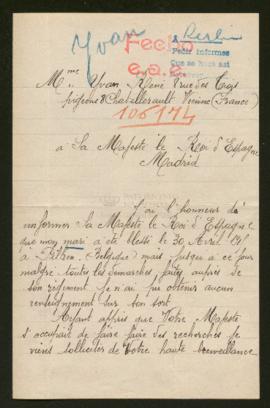 Yvan
Berlin
Fecho
e.a.e.
Pedir informes
Mme Yvan René rue des Trois
pigeons Chatellerault Vienne (France)
106174
à Sa Majesté le Roi d'Espagne
Madrid
J'ai l'honneur de
informer Sa Majesté le Roi d'Espagne
que mon mari a été blessé le 30 Avril
à (Belgique) mais jusqu'à ce jour
malgré toutes les démarches faites auprès de
son régiment je n'ai pu obtenir aucun
renseignement sur son sort.
Ayant appris que Votre Majesté
s'occupait de faire faire des recherches je
viens solliciter de Votre haute bienveillance